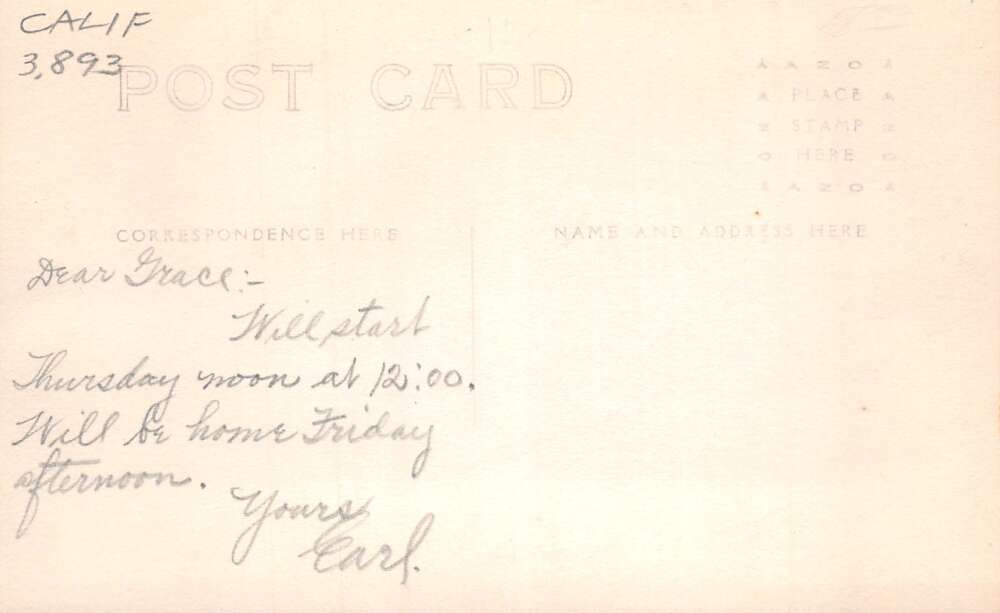 CALIF
3,893
POST CARD
AZO
PLACE
STAMP
HERE
AZO
CORRESPONDENCE HERE
NAME AND ADDRESS HERE
Dear Grace:-
Will start
Thursday noon at 12:00.
Will be home Friday
afternoon.
Yours
Carl.